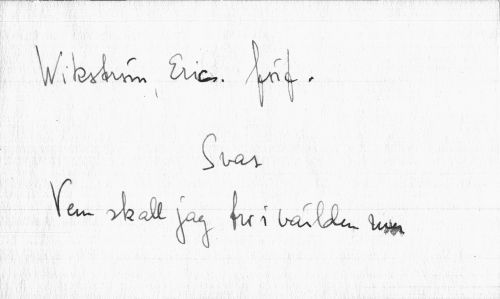 Wikström, Eric. förf.
Svar
Vem skall jag tro i världen